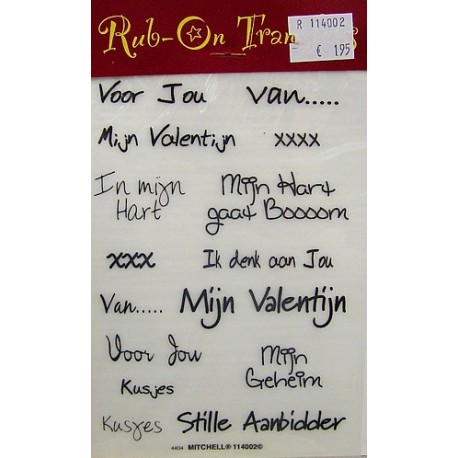 Rub-On Tran
R 114002
€ 1.95
Voor Jou van.....
Mijn Valentijn xxxx
In mijn Hart
Mijn Hart gaat Boooom
xxx Ik denk aan Jou
Van..... Mijn Valentijn
Voor Jou
Mijn Geheim
Kusjes
Kusjes Stille Aanbidder
4404 MITCHELL® 114002©